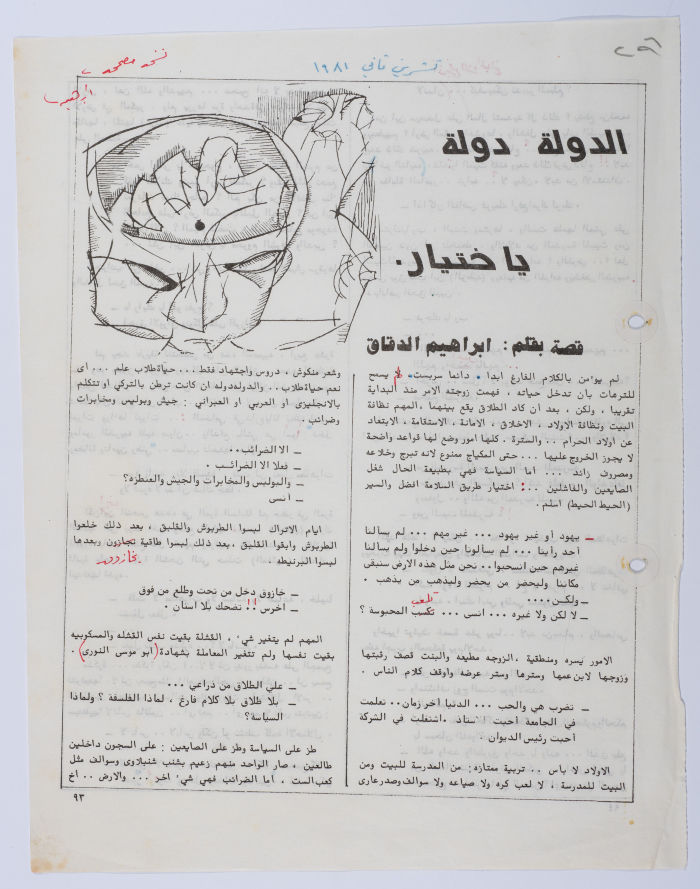 نسخة مصححة
ابراهيم
تشرين ثاني ١٩٨١
الدولة دولة
يا ختيار.
قصة بقلم: ابراهيم الدقاق
لم يؤمن بالكلام الفارغ ابدا . دائما سريست. لم يسمح
للترهات بأن تدخل حياته ، فهمت زوجته الامر منذ البداية
تقريبا ، ولكن ، بعد أن كاد الطلاق يقع بينهما ، المهم نظافة
البيت ونظافة الاولاد ، الاخلاق ، الامانة ، الاستقامة ، الابتعاد
عن اولاد الحرام ... والسترة . كلها امور وضع لها قواعد واضحة
لا يجوز الخروج عليها ... حتى المكياج ممنوع لانه تبرج وخلاعه
ومصروف زائد ... أما السياسة فهي بطبيعة الحال شغل
الصايعين والفاشلين ..: اختيار طريق السلامة افضل والسير
(الحيط الحيط) اسلم .
ــ يهود أو غير يهود ... غير مهم ... لم يسألنا
أحد راينا ... لم يسالونا حين دخلوا ولم يسألنا
غيرهم حين انسحبوا .. نحن مثل هذه الارض سنبقى
مكاننا وليحضر من يحضر وليذهب من يذهب .
ــ ولكن ....
تلعب
ــ لا لكن ولا غيره ... انسى ... تكسب المحبوسة ؟
الامور يسره ومنطقية ، الزوجه مطيعه والبنت قصف رقبتها
وزوجها لابن عمها وسترها وستر عرضه وأوقف كلام الناس .
ــ تضرب هي والحب ... الدنيا آخر زمان .. تعلمت
في الجامعة أحبت الاستاذ . اشتغلت في الشركة
أحبت رئيس الديوان .
الاولاد لا باس .. تربية ممتازه: من المدرسة للبيت ومن
البيت للمدرسة ، لا لعب كره ولا صياعه ولا سوالف وصدر عارى
وشعر منكوش ، دروس واجتهاد فقط ... حياة طلاب علم ... أى
نعم حياة طلاب .. والدوله دوله ان كانت ترطن بالتركي او تتكلم
بالانجليزي او العربي أو العبراني : جيش وبوليس ومخابرات
وضرائب .
ــ الا الضرائب ..
ــ فعلا الا الضرائب
ــ والبوليس والمخابرات والجيش والعنطزه؟
ــ أنسى
ايام الاتراك لبسوا الطربوش والقلبق ، بعد ذلك خلعوا
الطربوش وابقوا القلبق ، بعد ذلك لبسوا طاقية تجازون وبعدها
لبسوا البرنيطه .
ــ خازوق دخل من تحت وطلع من فوق
ــ اخرس !! تضحك بلا اسنان .
المهم لم يتغير شيء ، القشلة بقيت نفس القشله والمسكوبيه
بقيت نفسها ولم تتغير المعاملة بشهادة (ابو موسى النورى) .
ــ علي الطلاق من ذراعي ...
ــ بلا طلاق بلا كلام فارغ ، لماذا الفلسفة ؟ ولماذا
السياسة؟
طز على السياسة وطز على الصايعين : على السجون داخلين
طالعين ، صار الواحد منهم زعيم بشنب شنبلاوى وسوالف مثل
كعب الست . أما الضرائب فهي شيء اخر ... والارض .. أخ
٩٣